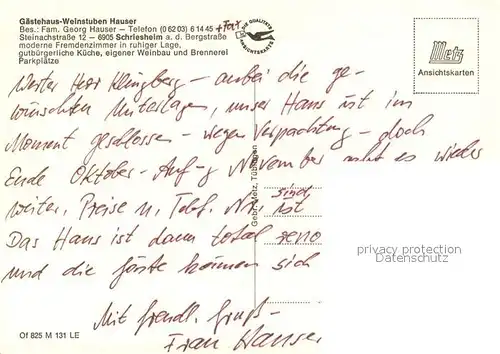 Gästehaus-Weinstuben Hauser
Bes.: Fam. Georg Hauser – Telefon (0 62 03) 6 14 45 + Fax
Steinachstraße 12 – 6905 Schriesheim a. d. Bergstraße
moderne Fremdenzimmer in ruhiger Lage,
gutbürgerliche Küche, eigener Weinbau und Brennerei
Parkplätze
DIE QUALITÄTS
ANSICHTSKARTE
Metz
Ansichtskarten
Werter Herr Klingberg – anbei die ge-
wünschten Unterlagen, unser Haus ist im
Moment geschlossen – wegen Verpachtung – doch
Ende Oktober – Anfang November geht es wieder
weiter, Preise u. Telef. Nr. ist sind
Das Haus ist dann total reno
und die Gäste können sich
Mit freundl. Gruß –
Frau Hauser
Gebr. Metz, Tübingen
privacy protection
Datenschutz
Of 825 M 131 LE